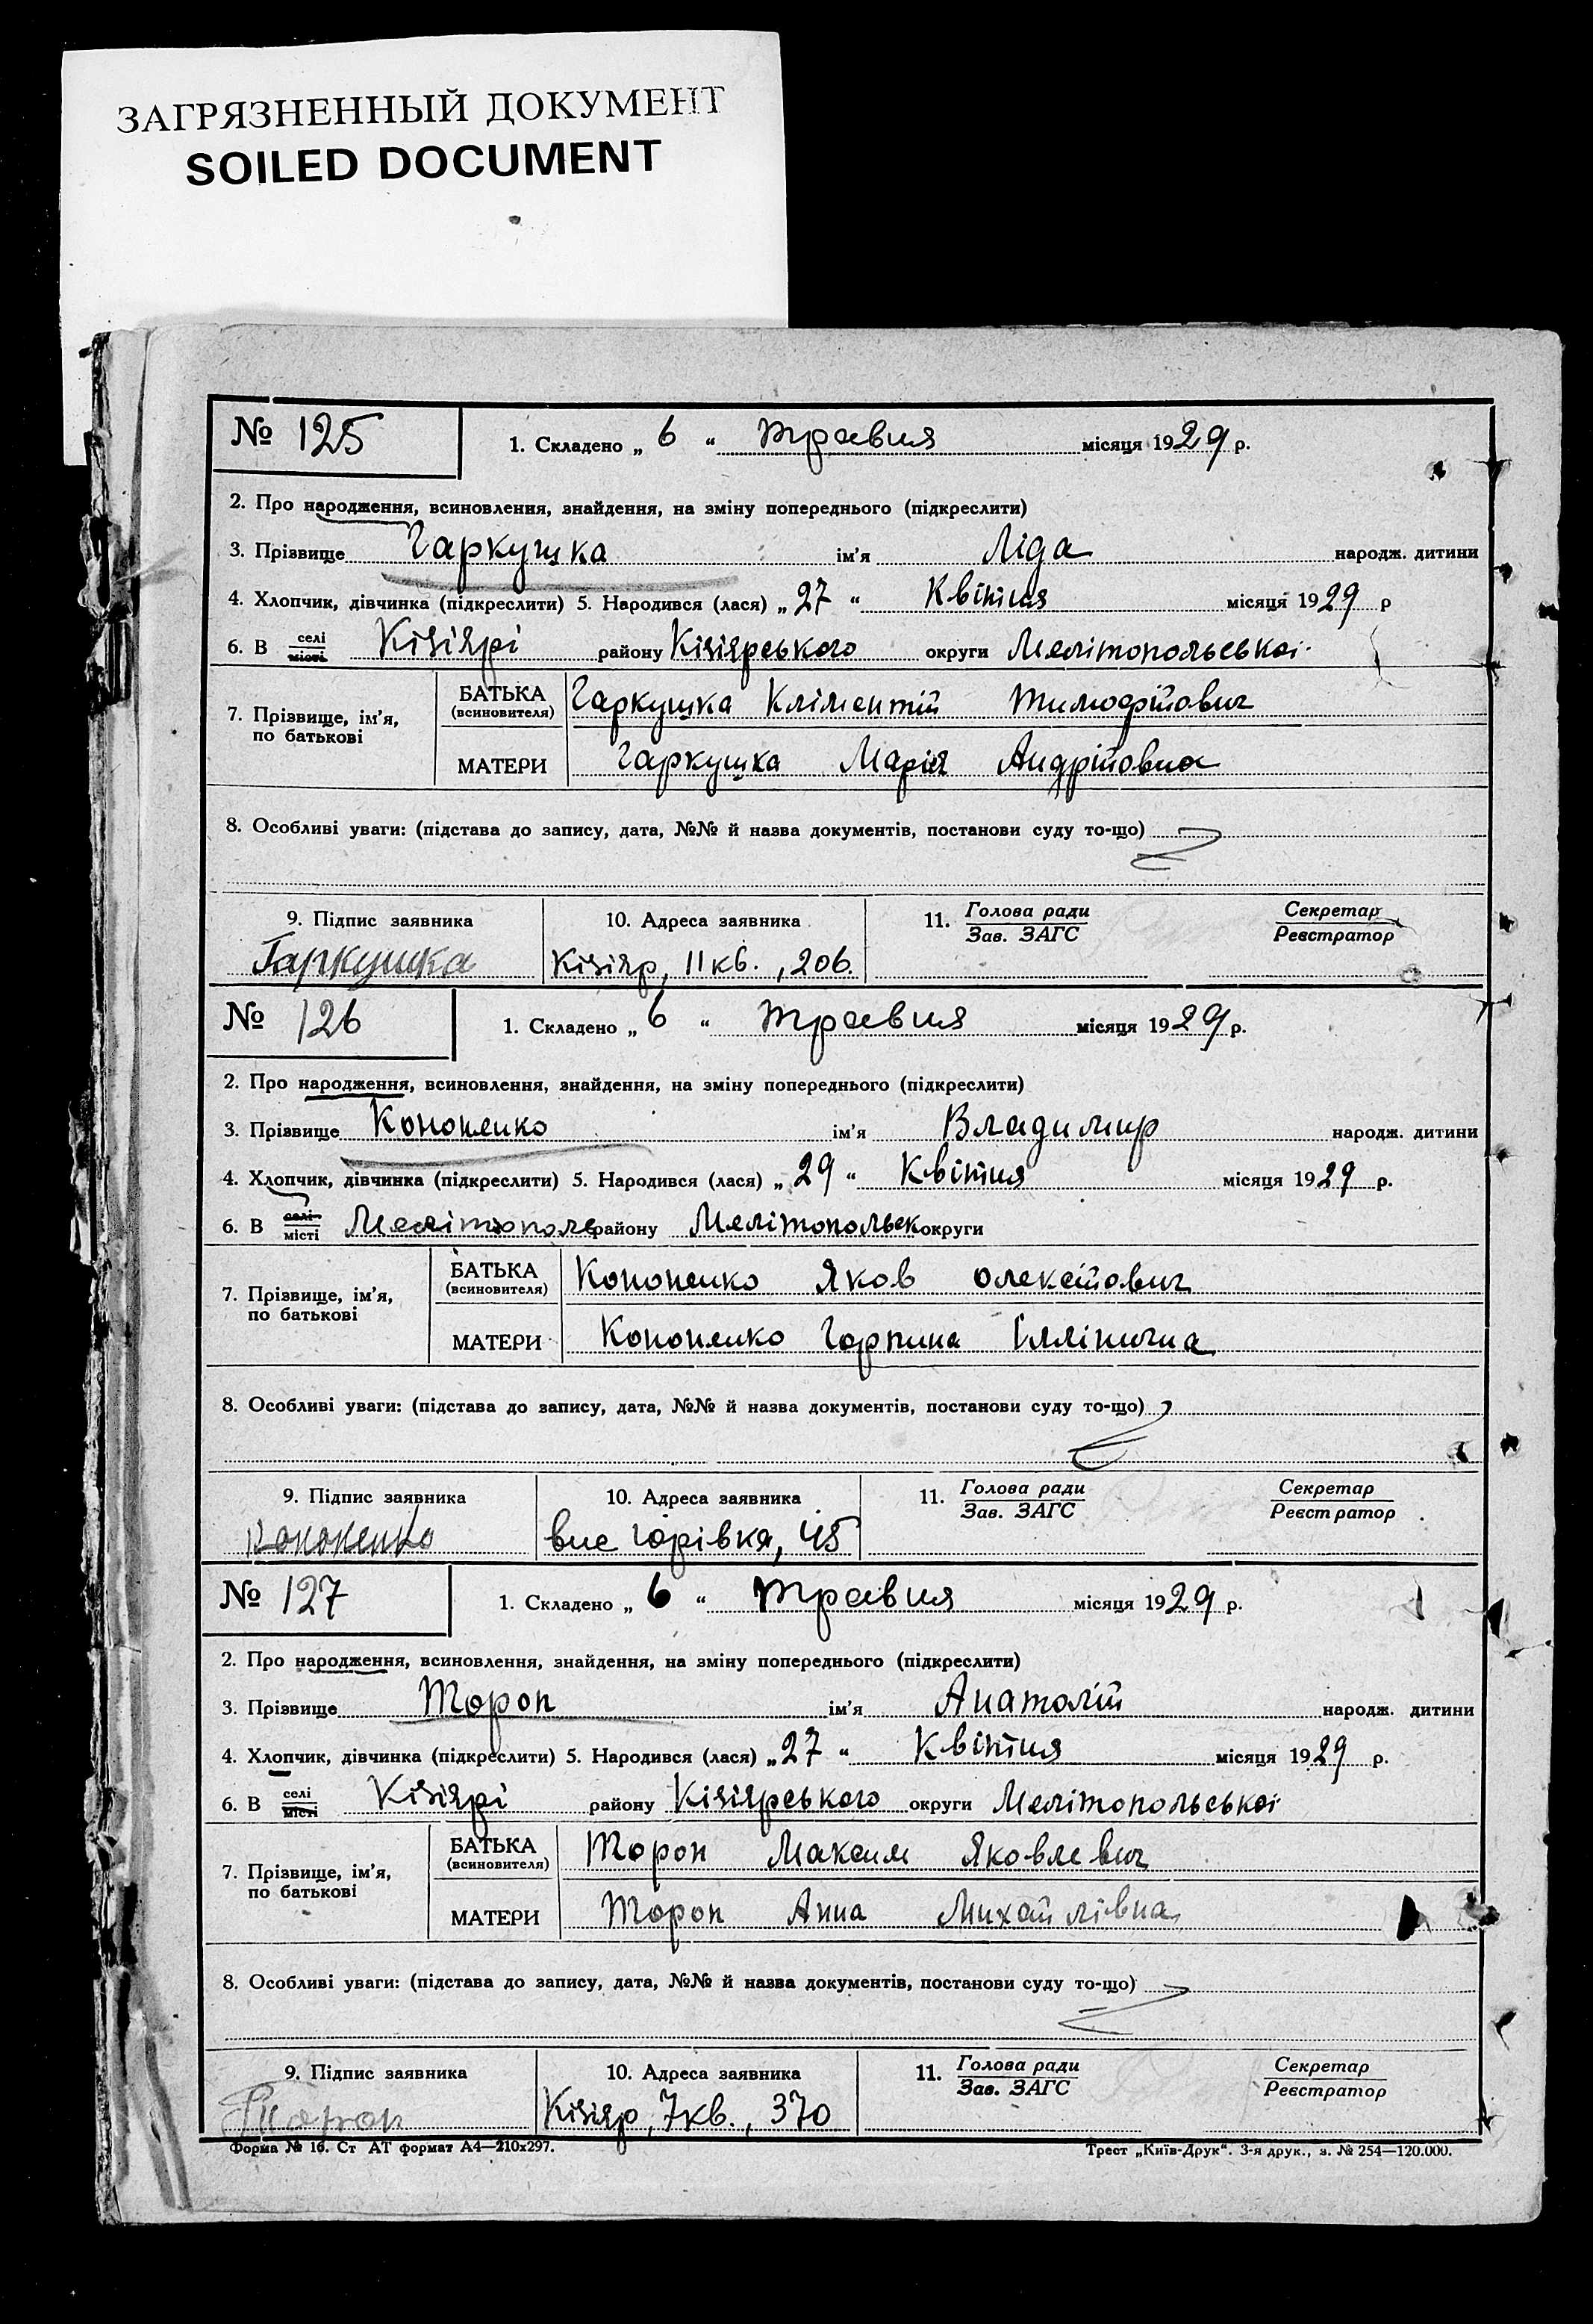 ЗАГРЯЗНЕННЫЙ ДОКУМЕНТ
SOILED DOCUMENT
№ 125 1. Складено „ 6 “ травня місяця 1929 р.
2. Про народження, всиновлення, знайдення, на зміну попереднього (підкреслити)
3. Прізвище Гаркушка ім’я Ліда народж. дитини
4. Хлопчик, дівчинка (підкреслити) 5. Народився (лася) „ 27 “ Квітня місяця 1929 р
6. В селі місті Кізіярі району Кізіярського округи Мелітопольської
7. Прізвище, ім’я, по батькові БАТЬКА (всиновителя) Гаркушка Кліментій Тимофійович
МАТЕРИ Гаркушка Марія Андрійовна
8. Особливі уваги: (підстава до запису, дата, №№ й назва документів, постанови суду то-що)
9. Підпис заявника 10. Адреса заявника 11. Голова ради Зав. ЗАГС Секретар Реєстратор
Гаркушка Кізіяр, 11 кв., 206.
№ 126 1. Складено „ 6 “ травня місяця 1929 р.
2. Про народження, всиновлення, знайдення, на зміну попереднього (підкреслити)
3. Прізвище Кононенко ім’я Владимир народж. дитини
4. Хлопчик, дівчинка (підкреслити) 5. Народився (лася) „ 29 “ Квітня місяця 1929 р.
6. В селі місті Мелітополь району Мелітопольськ округи
7. Прізвище, ім’я, по батькові БАТЬКА (всиновителя) Кононенко Яков Олексійович
МАТЕРИ Кононенко Горпина Іллінична
8. Особливі уваги: (підстава до запису, дата, №№ й назва документів, постанови суду то-що)
9. Підпис заявника 10. Адреса заявника 11. Голова ради Зав. ЗАГС Секретар Реєстратор
Кононенко 45
№ 127 1. Складено „ 6 “ травня місяця 1929 р.
2. Про народження, всиновлення, знайдення, на зміну попереднього (підкреслити)
3. Прізвище Тороп ім’я Анатолій народж. дитини
4. Хлопчик, дівчинка (підкреслити) 5. Народився (лася) „ 27 “ Квітня місяця 1929 р.
6. В селі місті Кізіярі району Кізіярського округи Мелітопольської
7. Прізвище, ім’я, по батькові БАТЬКА (всиновителя) Тороп Максим Яковлевич
МАТЕРИ Тороп Анна Михайлівна
8. Особливі уваги: (підстава до запису, дата, №№ й назва документів, постанови суду то-що)
9. Підпис заявника 10. Адреса заявника 11. Голова ради Зав. ЗАГС Секретар Реєстратор
Тороп Кізіяр, 7 кв., 370
Форма № 16. Ст АТ формат А4—210х297. Трест „Київ-Друк“. 3-я друк., з. № 254—120.000.